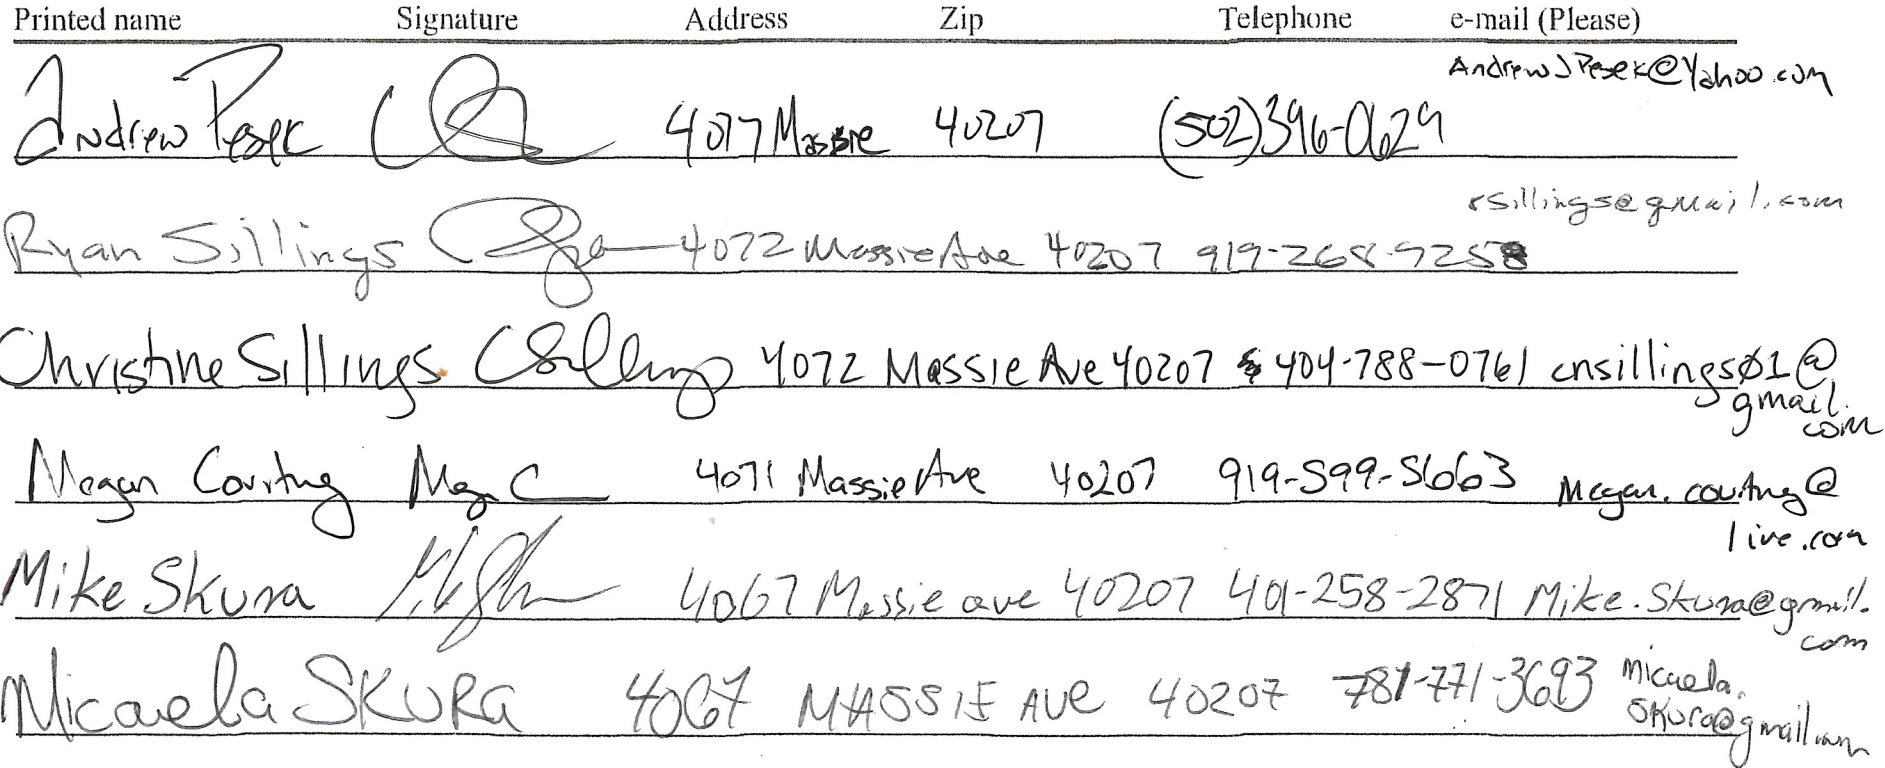 Printed name Signature Address Zip Telephone e-mail (Please)
AndrewJPesek@Yahoo.com
Andrew Pesek 4077 Massie 40207 (502)396-0629
rsillings@gmail.com
Ryan Sillings 4072 Massie Ave 40207 919-268-9258
Christine Sillings CSillings 4072 Massie Ave 40207 404-788-0761 cnsillings01@
gmail.
com
Megan Courtney Meg C 4071 Massie Ave 40207 919-599-5663 Megan.courtney@
live.com
Mike Skura 4067 Massie ave 40207 401-258-2871 Mike.Skura@gmail.
com
Micaela SKURA 4067 MASSIE AVE 40207 781-771-3693 micaela.
skura@gmail.com